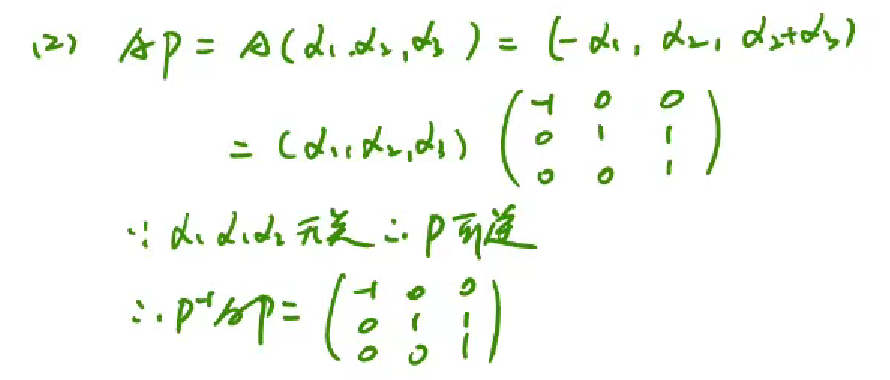 (2) AP = A(α₁,α₂,α₃) = (-α₁, α₂, α₂+α₃)
= (α₁,α₂,α₃) ( -1 0 0
0 1 1
0 0 1 )
∵ α₁ α₂ α₃ 无关 ∴ P可逆
∴ P⁻¹AP = ( -1 0 0
0 1 1
0 0 1 )